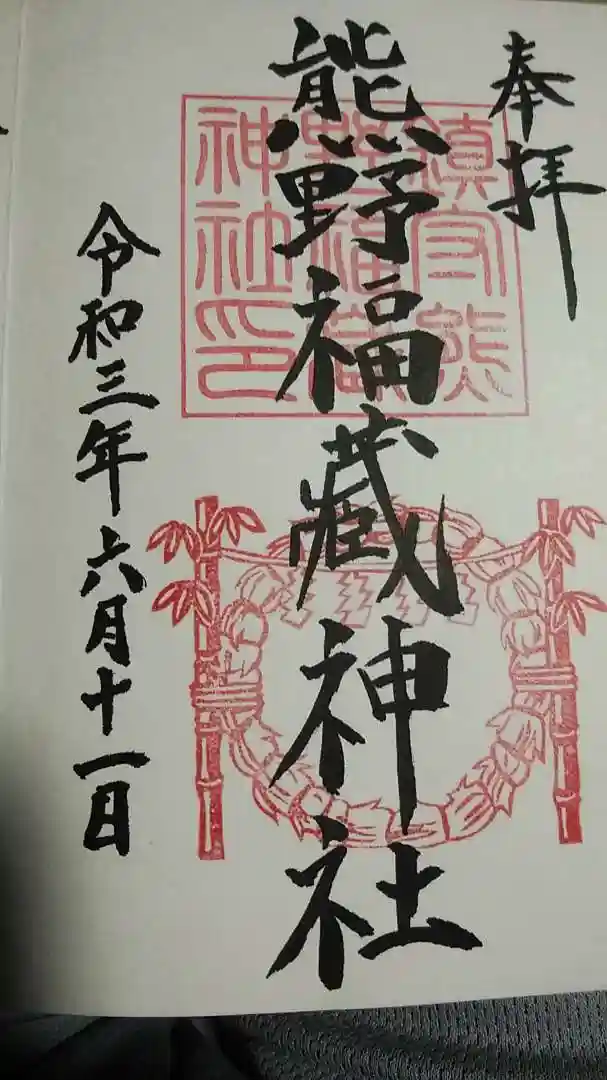 奉拝
熊野福藏神社
令和三年六月十一日
鎮守熊
野福蔵
神社印